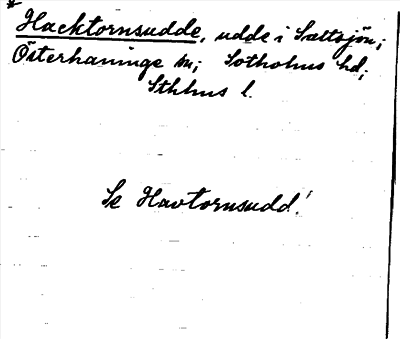 * Hacktornsudde, udde i Saltsjön;
Österhaninge sn; Sotholms hd;
Sthlms l.
Se Havtornsudd!